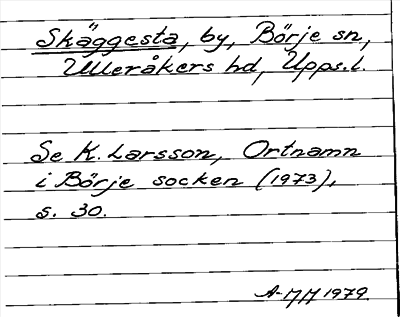 Skäggesta, by, Börje sn,
Ulleråkers hd, Upps.l.
Se K. Larsson, Ortnamn
i Börje socken (1973),
s. 30.
A-MM 1979